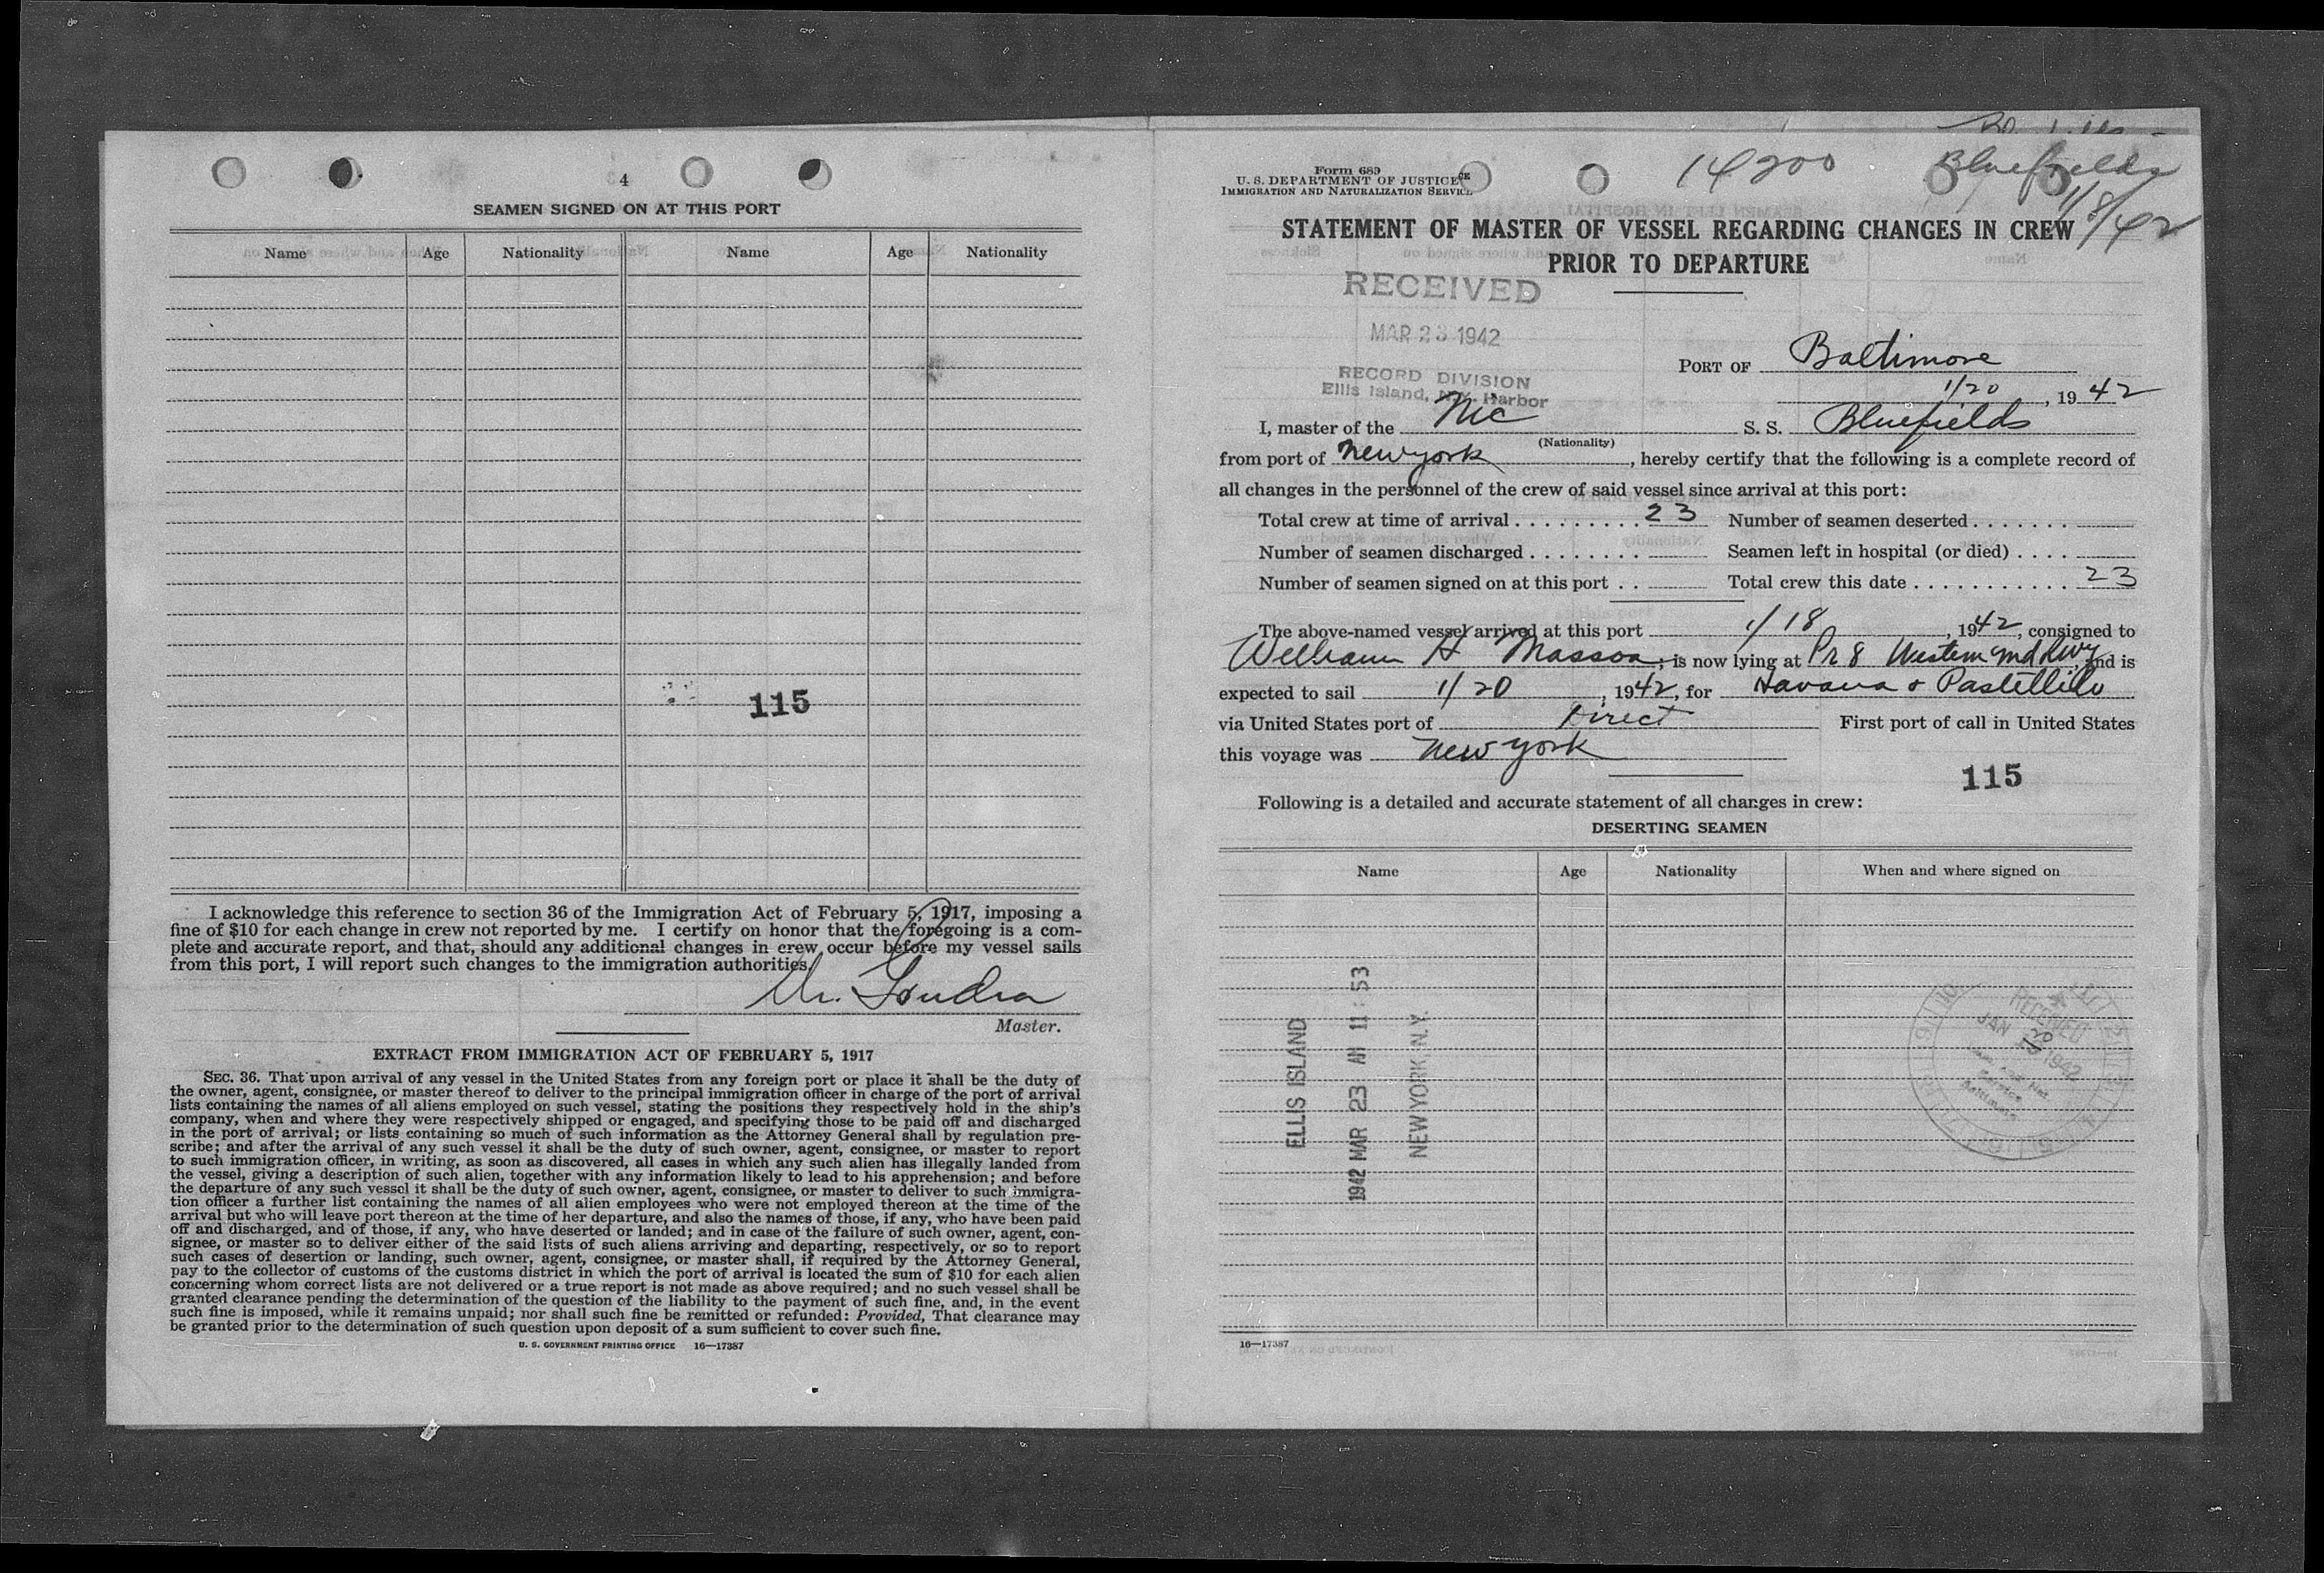 4
SEAMEN SIGNED ON AT THIS PORT
Name Age Nationality Name Age Nationality
115
I acknowledge this reference to section 36 of the Immigration Act of February 5, 1917, imposing a
fine of $10 for each change in crew not reported by me. I certify on honor that the foregoing is a com-
plete and accurate report, and that, should any additional changes in crew occur before my vessel sails
from this port, I will report such changes to the immigration authorities.
Master.
EXTRACT FROM IMMIGRATION ACT OF FEBRUARY 5, 1917
SEC. 36. That upon arrival of any vessel in the United States from any foreign port or place it shall be the duty of
the owner, agent, consignee, or master thereof to deliver to the principal immigration officer in charge of the port of arrival
lists containing the names of all aliens employed on such vessel, stating the positions they respectively hold in the ship's
company, when and where they were respectively shipped or engaged, and specifying those to be paid off and discharged
in the port of arrival; or lists containing so much of such information as the Attorney General shall by regulation pre-
scribe; and after the arrival of any such vessel it shall be the duty of such owner, agent, consignee, or master to report
to such immigration officer, in writing, as soon as discovered, all cases in which any such alien has illegally landed from
the vessel, giving a description of such alien, together with any information likely to lead to his apprehension; and before
the departure of any such vessel it shall be the duty of such owner, agent, consignee, or master to deliver to such immigra-
tion officer a further list containing the names of all alien employees who were not employed thereon at the time of the
arrival but who will leave port thereon at the time of her departure, and also the names of those, if any, who have been paid
off and discharged, and of those, if any, who have deserted or landed; and in case of the failure of such owner, agent, con-
signee, or master so to deliver either of the said lists of such aliens arriving and departing, respectively, or so to report
such cases of desertion or landing, such owner, agent, consignee, or master shall, if required by the Attorney General,
pay to the collector of customs of the customs district in which the port of arrival is located the sum of $10 for each alien
concerning whom correct lists are not delivered or a true report is not made as above required; and no such vessel shall be
granted clearance pending the determination of the question of the liability to the payment of such fine, and, in the event
such fine is imposed, while it remains unpaid; nor shall such fine be remitted or refunded: Provided, That clearance may
be granted prior to the determination of such question upon deposit of a sum sufficient to cover such fine.
U. S. GOVERNMENT PRINTING OFFICE 16—17387
Form 689
U. S. DEPARTMENT OF JUSTICE
IMMIGRATION AND NATURALIZATION SERVICE
14200
Bluefields
1/8/42
STATEMENT OF MASTER OF VESSEL REGARDING CHANGES IN CREW
PRIOR TO DEPARTURE
RECEIVED
MAR 23 1942
RECORD DIVISION
Ellis Island, N.Y. Harbor
PORT OF Baltimore
1/20, 1942
I, master of the Nic S. S. Bluefields
(Nationality)
from port of New york, hereby certify that the following is a complete record of
all changes in the personnel of the crew of said vessel since arrival at this port:
Total crew at time of arrival . . . . . . . . . 23 Number of seamen deserted . . . . . . .
Number of seamen discharged . . . . . . . . Seamen left in hospital (or died) . . . .
Number of seamen signed on at this port . . Total crew this date . . . . . . . . . . . . 23
The above-named vessel arrived at this port 1/18, 1942, consigned to
William H Masson; is now lying at Pr 8 Western Md Rwy, and is
expected to sail 1/20, 1942, for Havana & Pastelillo
via United States port of Direct First port of call in United States
this voyage was New york
115
Following is a detailed and accurate statement of all changes in crew:
DESERTING SEAMEN
Name Age Nationality When and where signed on
ELLIS ISLAND
1942 MAR 23 AM 11:53
NEW YORK, N.Y.
RECEIVED
JAN 1942
Service
Baltimore
16—17387